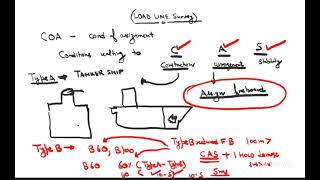 (LOAD LINE Survey)
COA - cond of assignment
Conditions relating to C A S
Construction assignment stability
Type A → TANKER SHIP
Assign freeboard
Type B → B60, B100
Type B reduced F.B 100m >
CAS + 1 Hold damage
B60 60% (Type A - Type B)